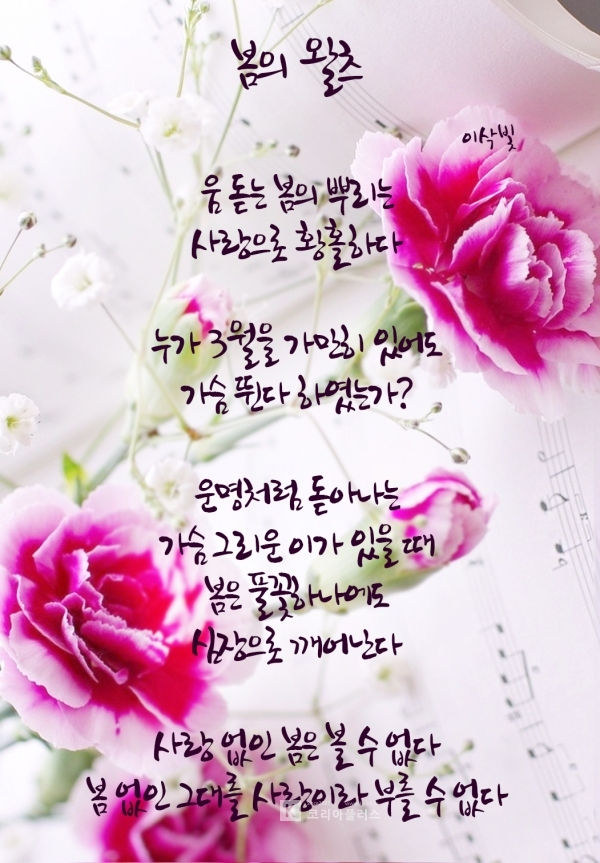 봄의 왈츠
이삭빛
움 돋는 봄의 뿌리는
사랑으로 황홀하다
누가 3월을 가만히 있어도
가슴 뛴다 하였는가?
운명처럼 돋아나는
가슴 그리운 이가 있을 때
봄은 풀꽃하나에도
심장으로 깨어난다
사랑 없인 봄은 볼 수 없다
봄 없인 그대를 사랑이라 부를 수 없다
코리아플러스